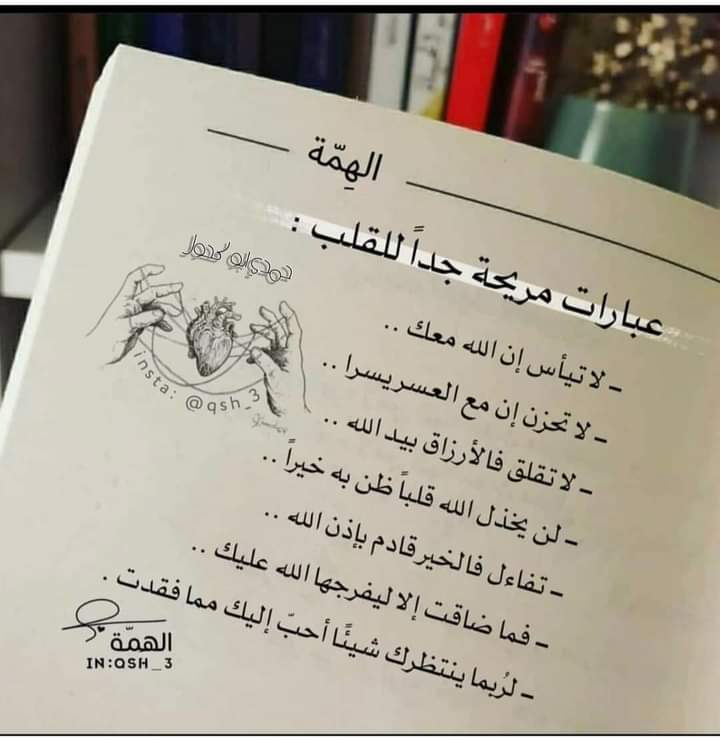 الهِمّة
عبارات مريحة جداً للقلب :
حمدي ابو كحول
insta: @qsh_3
- لا تيأس إن الله معك ..
- لا تحزن إن مع العسر يسرا ..
- لا تقلق فالأرزاق بيد الله ..
- لن يخذل الله قلباً ظن به خيراً ..
- تفاءل فالخير قادم بإذن الله ..
- فما ضاقت إلا ليفرجها الله عليك ..
- لرُبما ينتظرك شيئًا أحبّ إليك مما فقدت .
الهمّة
IN:QSH_3